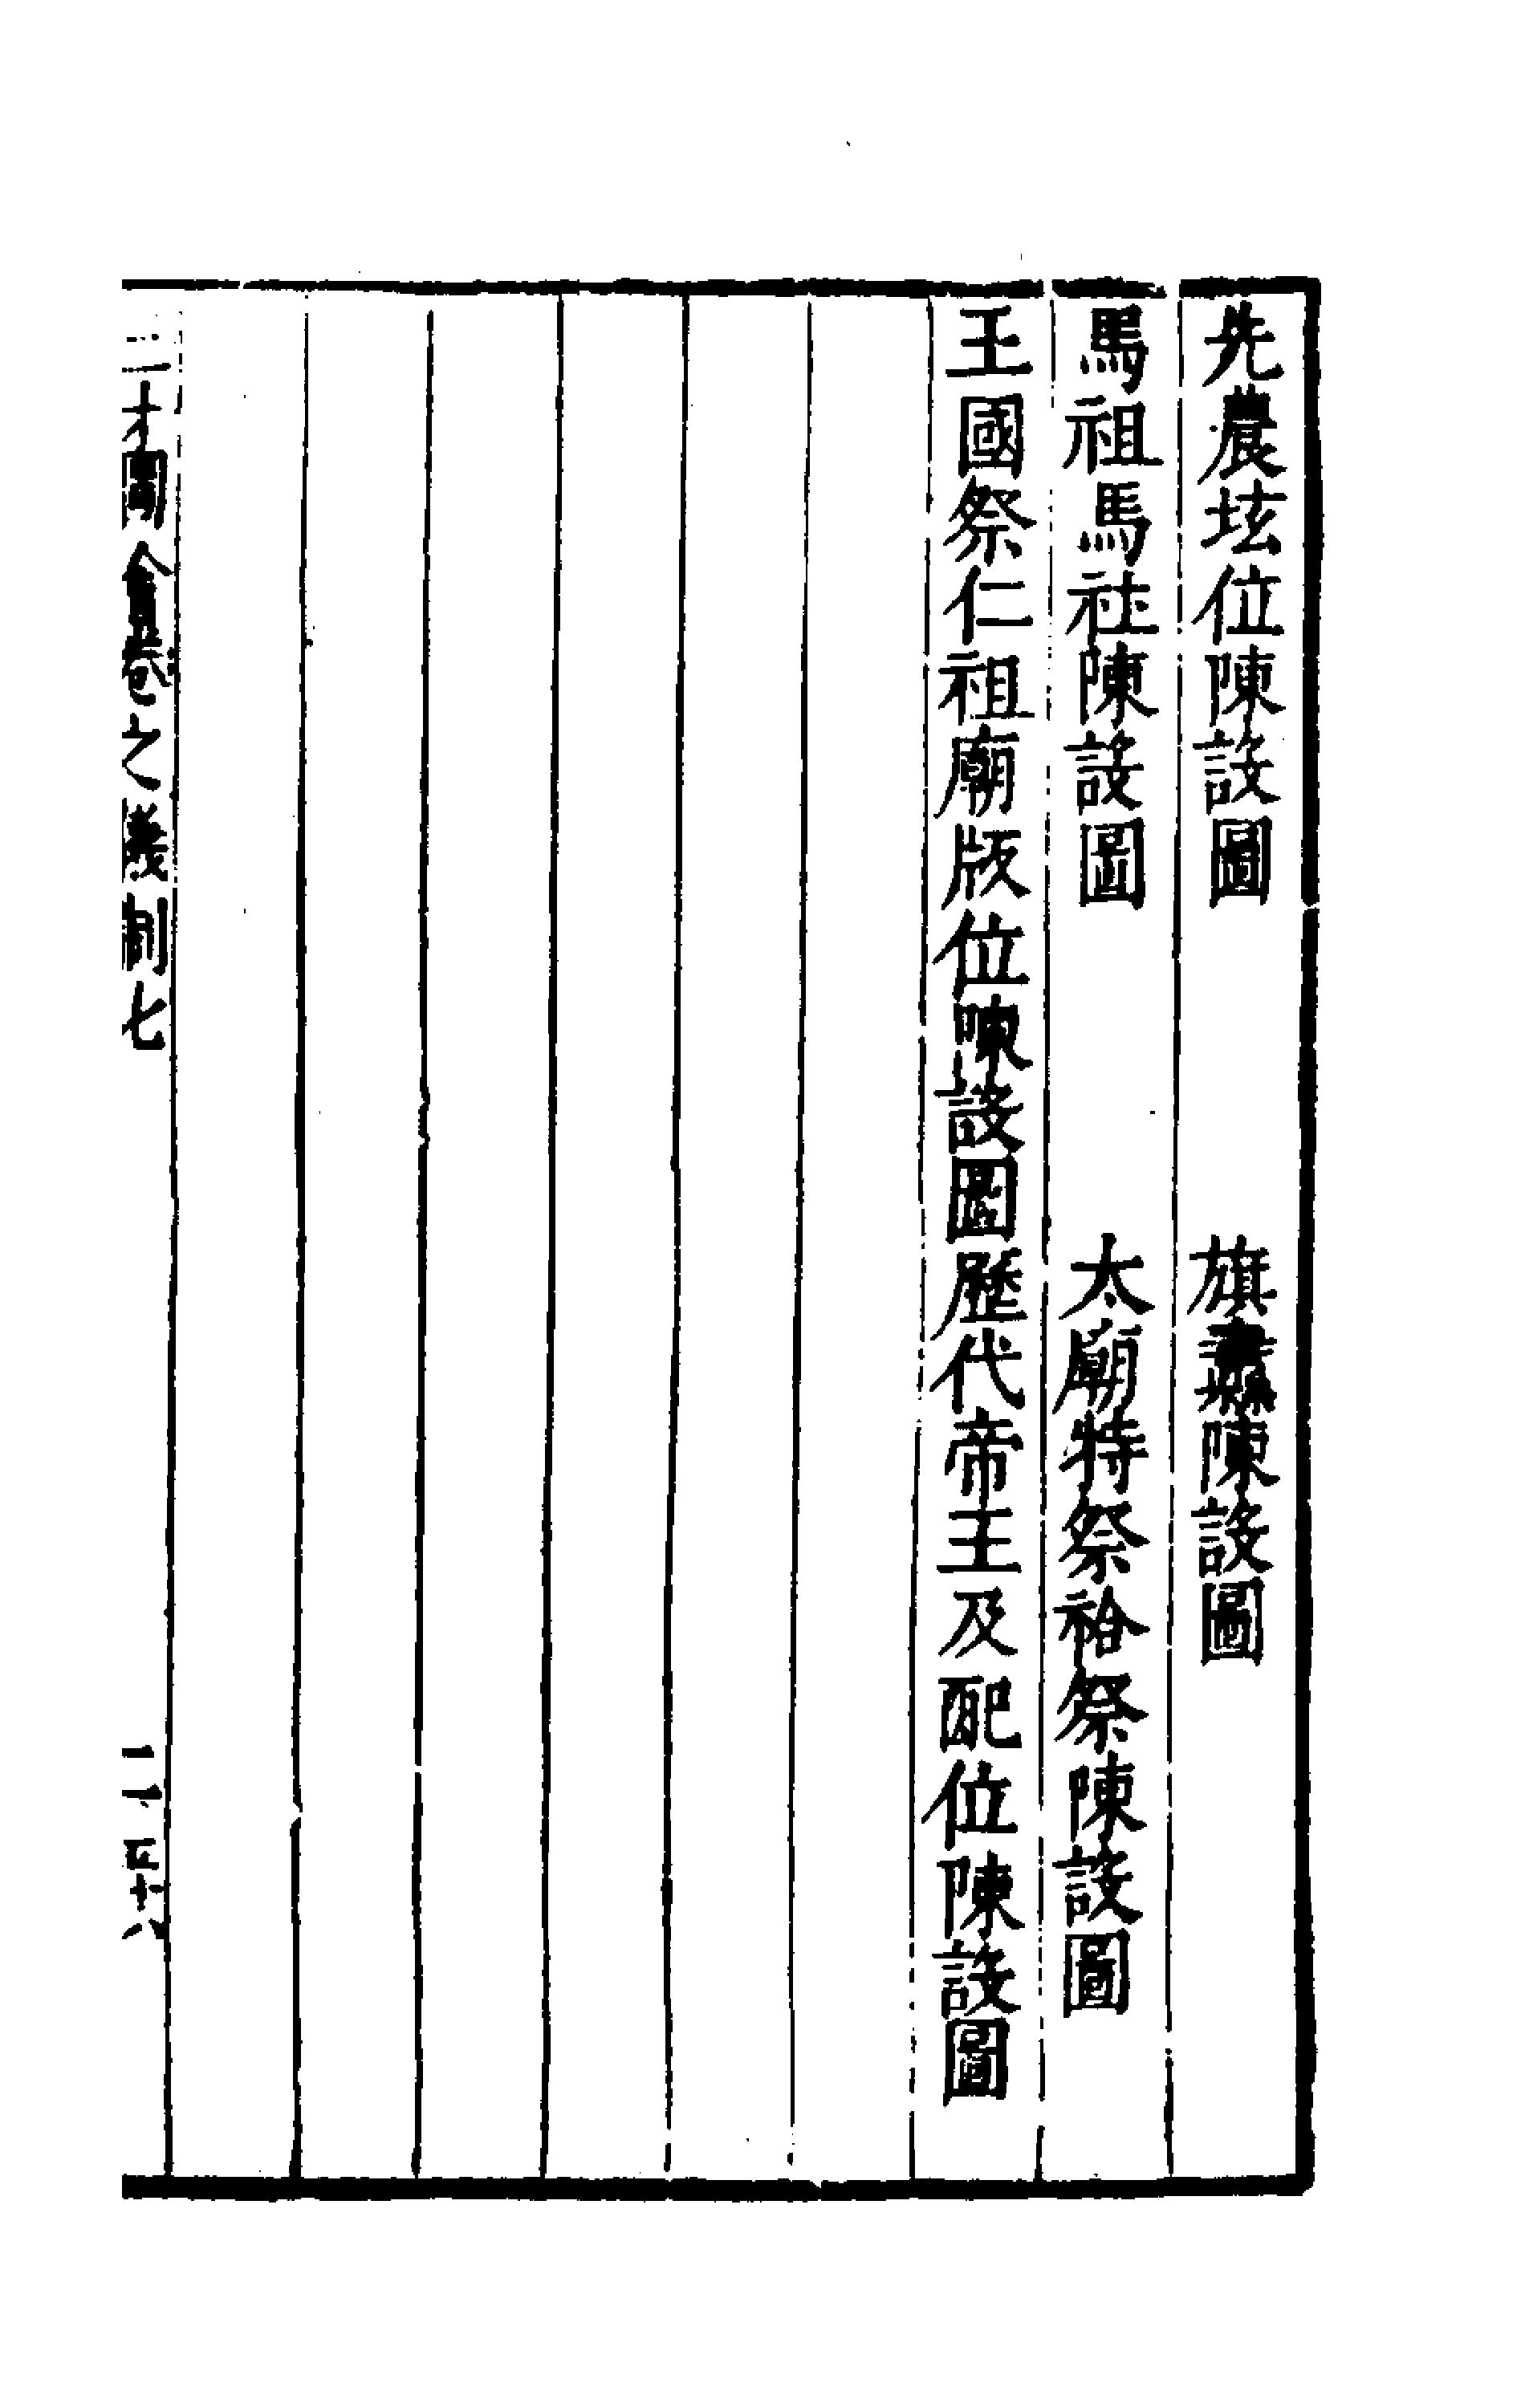 先農壇位陳設圖　旗纛陳設圖
馬祖馬社陳設圖　太廟特祭祫祭陳設圖
王國祭仁祖廟版位陳設圖歷代帝王及配位陳設圖
三才圖會卷之儀制七